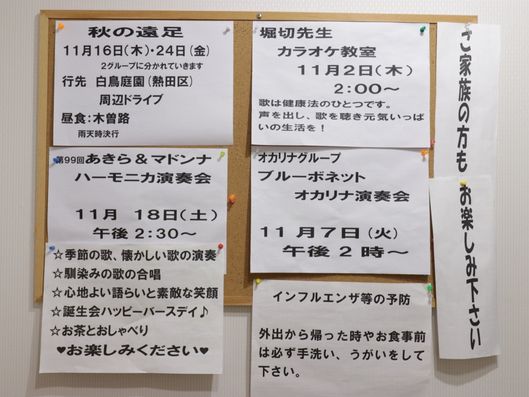 秋の遠足
11月16日(木)・24日(金)
2グループに分かれていきます
行先 白鳥庭園(熱田区)
周辺ドライブ
昼食:木曽路
雨天時決行
堀切先生
カラオケ教室
11月2日(木)
2:00~
歌は健康法のひとつです。
声を出し、歌を聴き元気いっぱ
いの生活を!
第99回あきら&マドンナ
ハーモニカ演奏会
11月 18日(土)
午後 2:30~
☆季節の歌、懐かしい歌の演奏
☆馴染みの歌の合唱
☆心地よい語らいと素敵な笑顔
☆誕生会ハッピーバースデイ♪
☆お茶とおしゃべり
♥お楽しみください♥
オカリナグループ
ブルーボネット
オカリナ演奏会
11月7日(火)
午後2時~
インフルエンザ等の予防
外出から帰った時やお食事前
は必ず手洗い、うがいをして
下さい。
ご家族の方も お楽しみ下さい